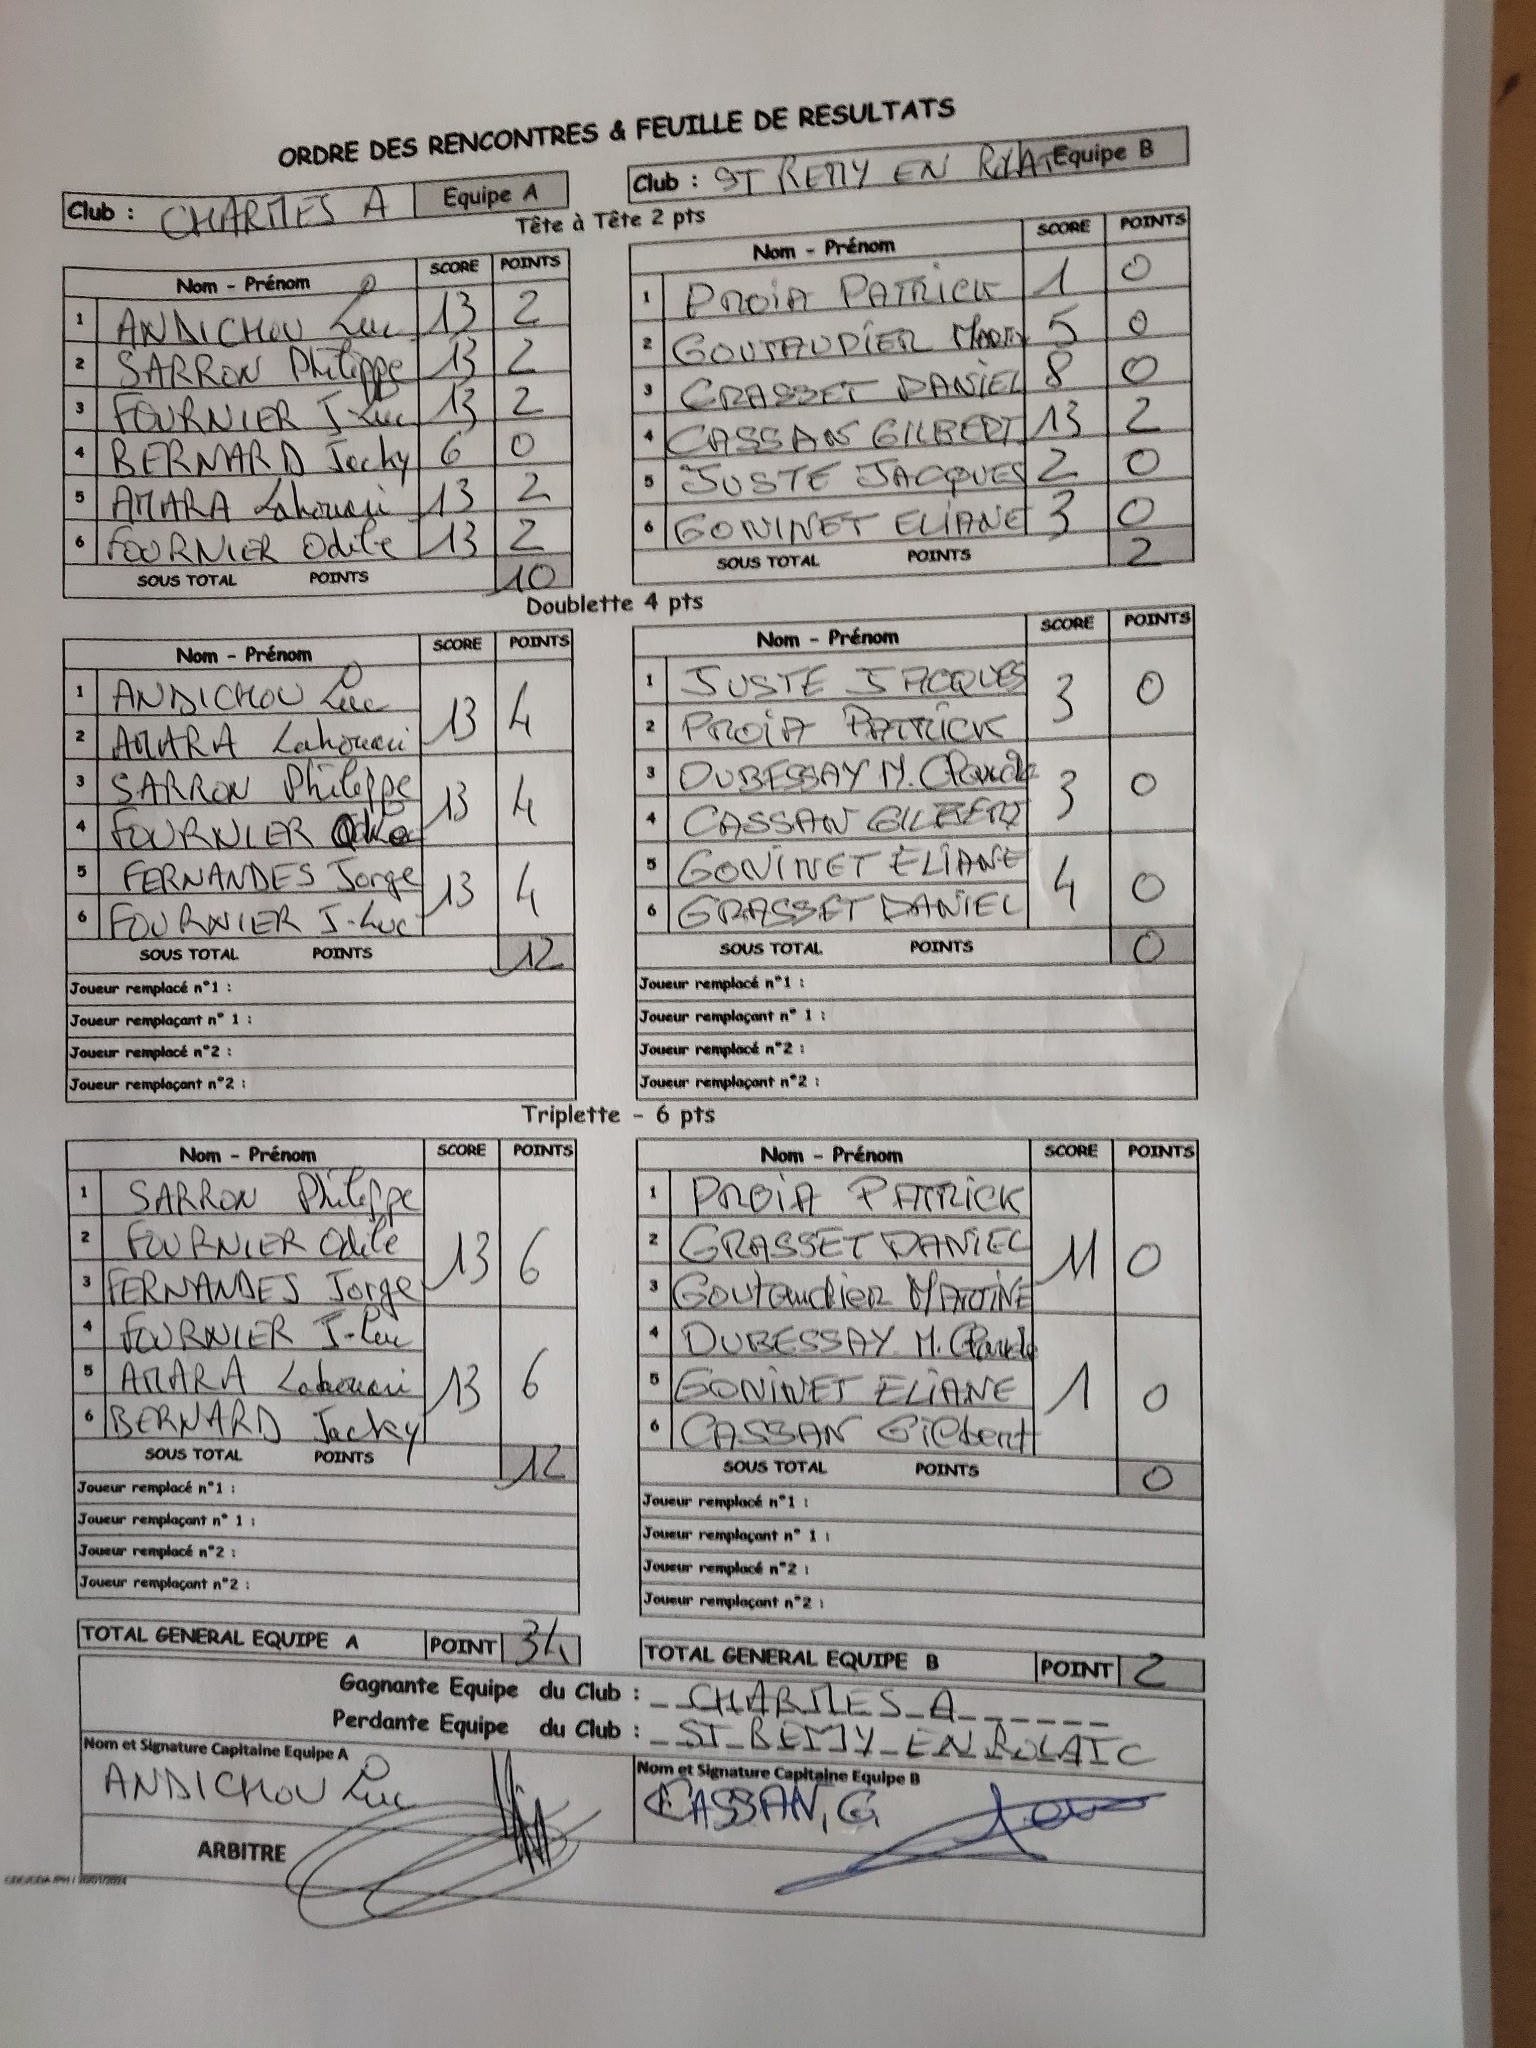 ORDRE DES RENCONTRES & FEUILLE DE RESULTATS
Club : CHARMES A Equipe A
Club : ST REMY EN ROLAT Equipe B
Tête à Tête 2 pts
Nom - Prénom SCORE POINTS
1 ANDICHOU Luc 13 2
2 SARRON Philippe 13 2
3 FOURNIER J-Luc 13 2
4 BERNARD Jacky 6 0
5 AMARA Lahouari 13 2
6 FOURNIER Odile 13 2
SOUS TOTAL POINTS 10
Nom - Prénom SCORE POINTS
1 PROIA PATRICK 1 0
2 GOUTAUDIER 5 0
3 GRASSET DANIEL 8 0
4 CASSAN GILBERT 13 2
5 JUSTE JACQUES 2 0
6 GONINET ELIANE 3 0
SOUS TOTAL POINTS 2
Doublette 4 pts
Nom - Prénom SCORE POINTS
1 ANDICHOU Luc
2 AMARA Lahouari 13 4
3 SARRON Philippe
4 FOURNIER Odile 13 4
5 FERNANDES Jorge
6 FOURNIER J-Luc 13 4
SOUS TOTAL POINTS 12
Joueur remplacé n°1 :
Joueur remplaçant n° 1 :
Joueur remplacé n°2 :
Joueur remplaçant n°2 :
Nom - Prénom SCORE POINTS
1 JUSTE JACQUES
2 PROIA PATRICK 3 0
3 DUBESSAY M. Claude
4 CASSAN GILBERT 3 0
5 GONINET ELIANE
6 GRASSET DANIEL 4 0
SOUS TOTAL POINTS 0
Joueur remplacé n°1 :
Joueur remplaçant n° 1 :
Joueur remplacé n°2 :
Joueur remplaçant n°2 :
Triplette - 6 pts
Nom - Prénom SCORE POINTS
1 SARRON Philippe
2 FOURNIER Odile 13 6
3 FERNANDES Jorge
4 FOURNIER J-Luc
5 AMARA Lahouari 13 6
6 BERNARD Jacky
SOUS TOTAL POINTS 12
Joueur remplacé n°1 :
Joueur remplaçant n° 1 :
Joueur remplacé n°2 :
Joueur remplaçant n°2 :
Nom - Prénom SCORE POINTS
1 PROIA PATRICK
2 GRASSET DANIEL 11 0
3 Goutaudier MARTINE
4 DUBESSAY M. Claude
5 GONINET ELIANE 1 0
6 CASSAN Gilbert
SOUS TOTAL POINTS 0
Joueur remplacé n°1 :
Joueur remplaçant n° 1 :
Joueur remplacé n°2 :
Joueur remplaçant n°2 :
TOTAL GENERAL EQUIPE A POINT 34
TOTAL GENERAL EQUIPE B POINT 2
Gagnante Equipe du Club : CHARMES A
Perdante Equipe du Club : ST REMY EN ROLAT
Nom et Signature Capitaine Equipe A
ANDICHOU Luc
Nom et Signature Capitaine Equipe B
CASSAN, G
ARBITRE